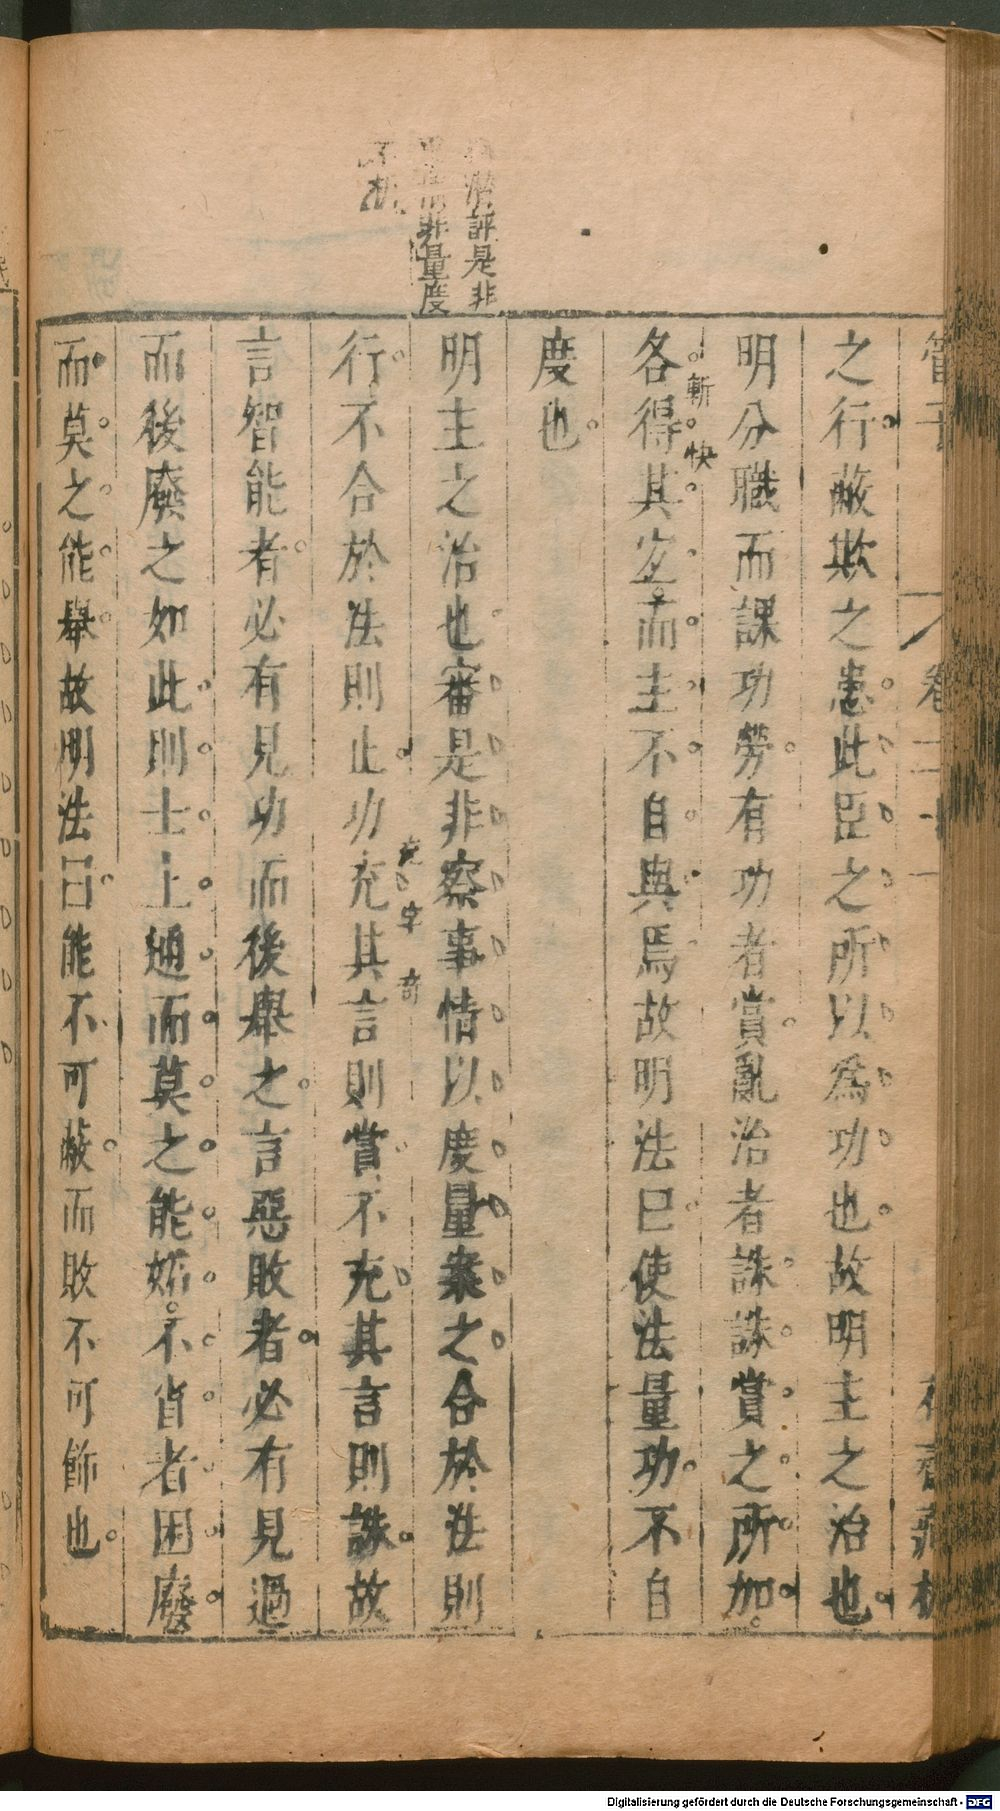 管子
卷二十一
花齋藏板
之行蔽欺之患此臣之所以為功也故明主之治也
明分職而課功勞有功者賞亂治者誅誅賞之所加
嶄快
各得其宐而主不自與焉故明法曰使法量功不自
度也
評是非
非量度
明主之治也審是非察事情以度量案之合於法則
行不合於法則止功充其言則賞不充其言則誅故
充字奇
言智能者必有見功而後舉之言惡敗者必有見過
而後廢之如此則士上通而莫之能妬不肖者困廢
而莫之能舉故明法曰能不可蔽而敗不可飾也
Digitalisierung gefördert durch die Deutsche Forschungsgemeinschaft - DFG